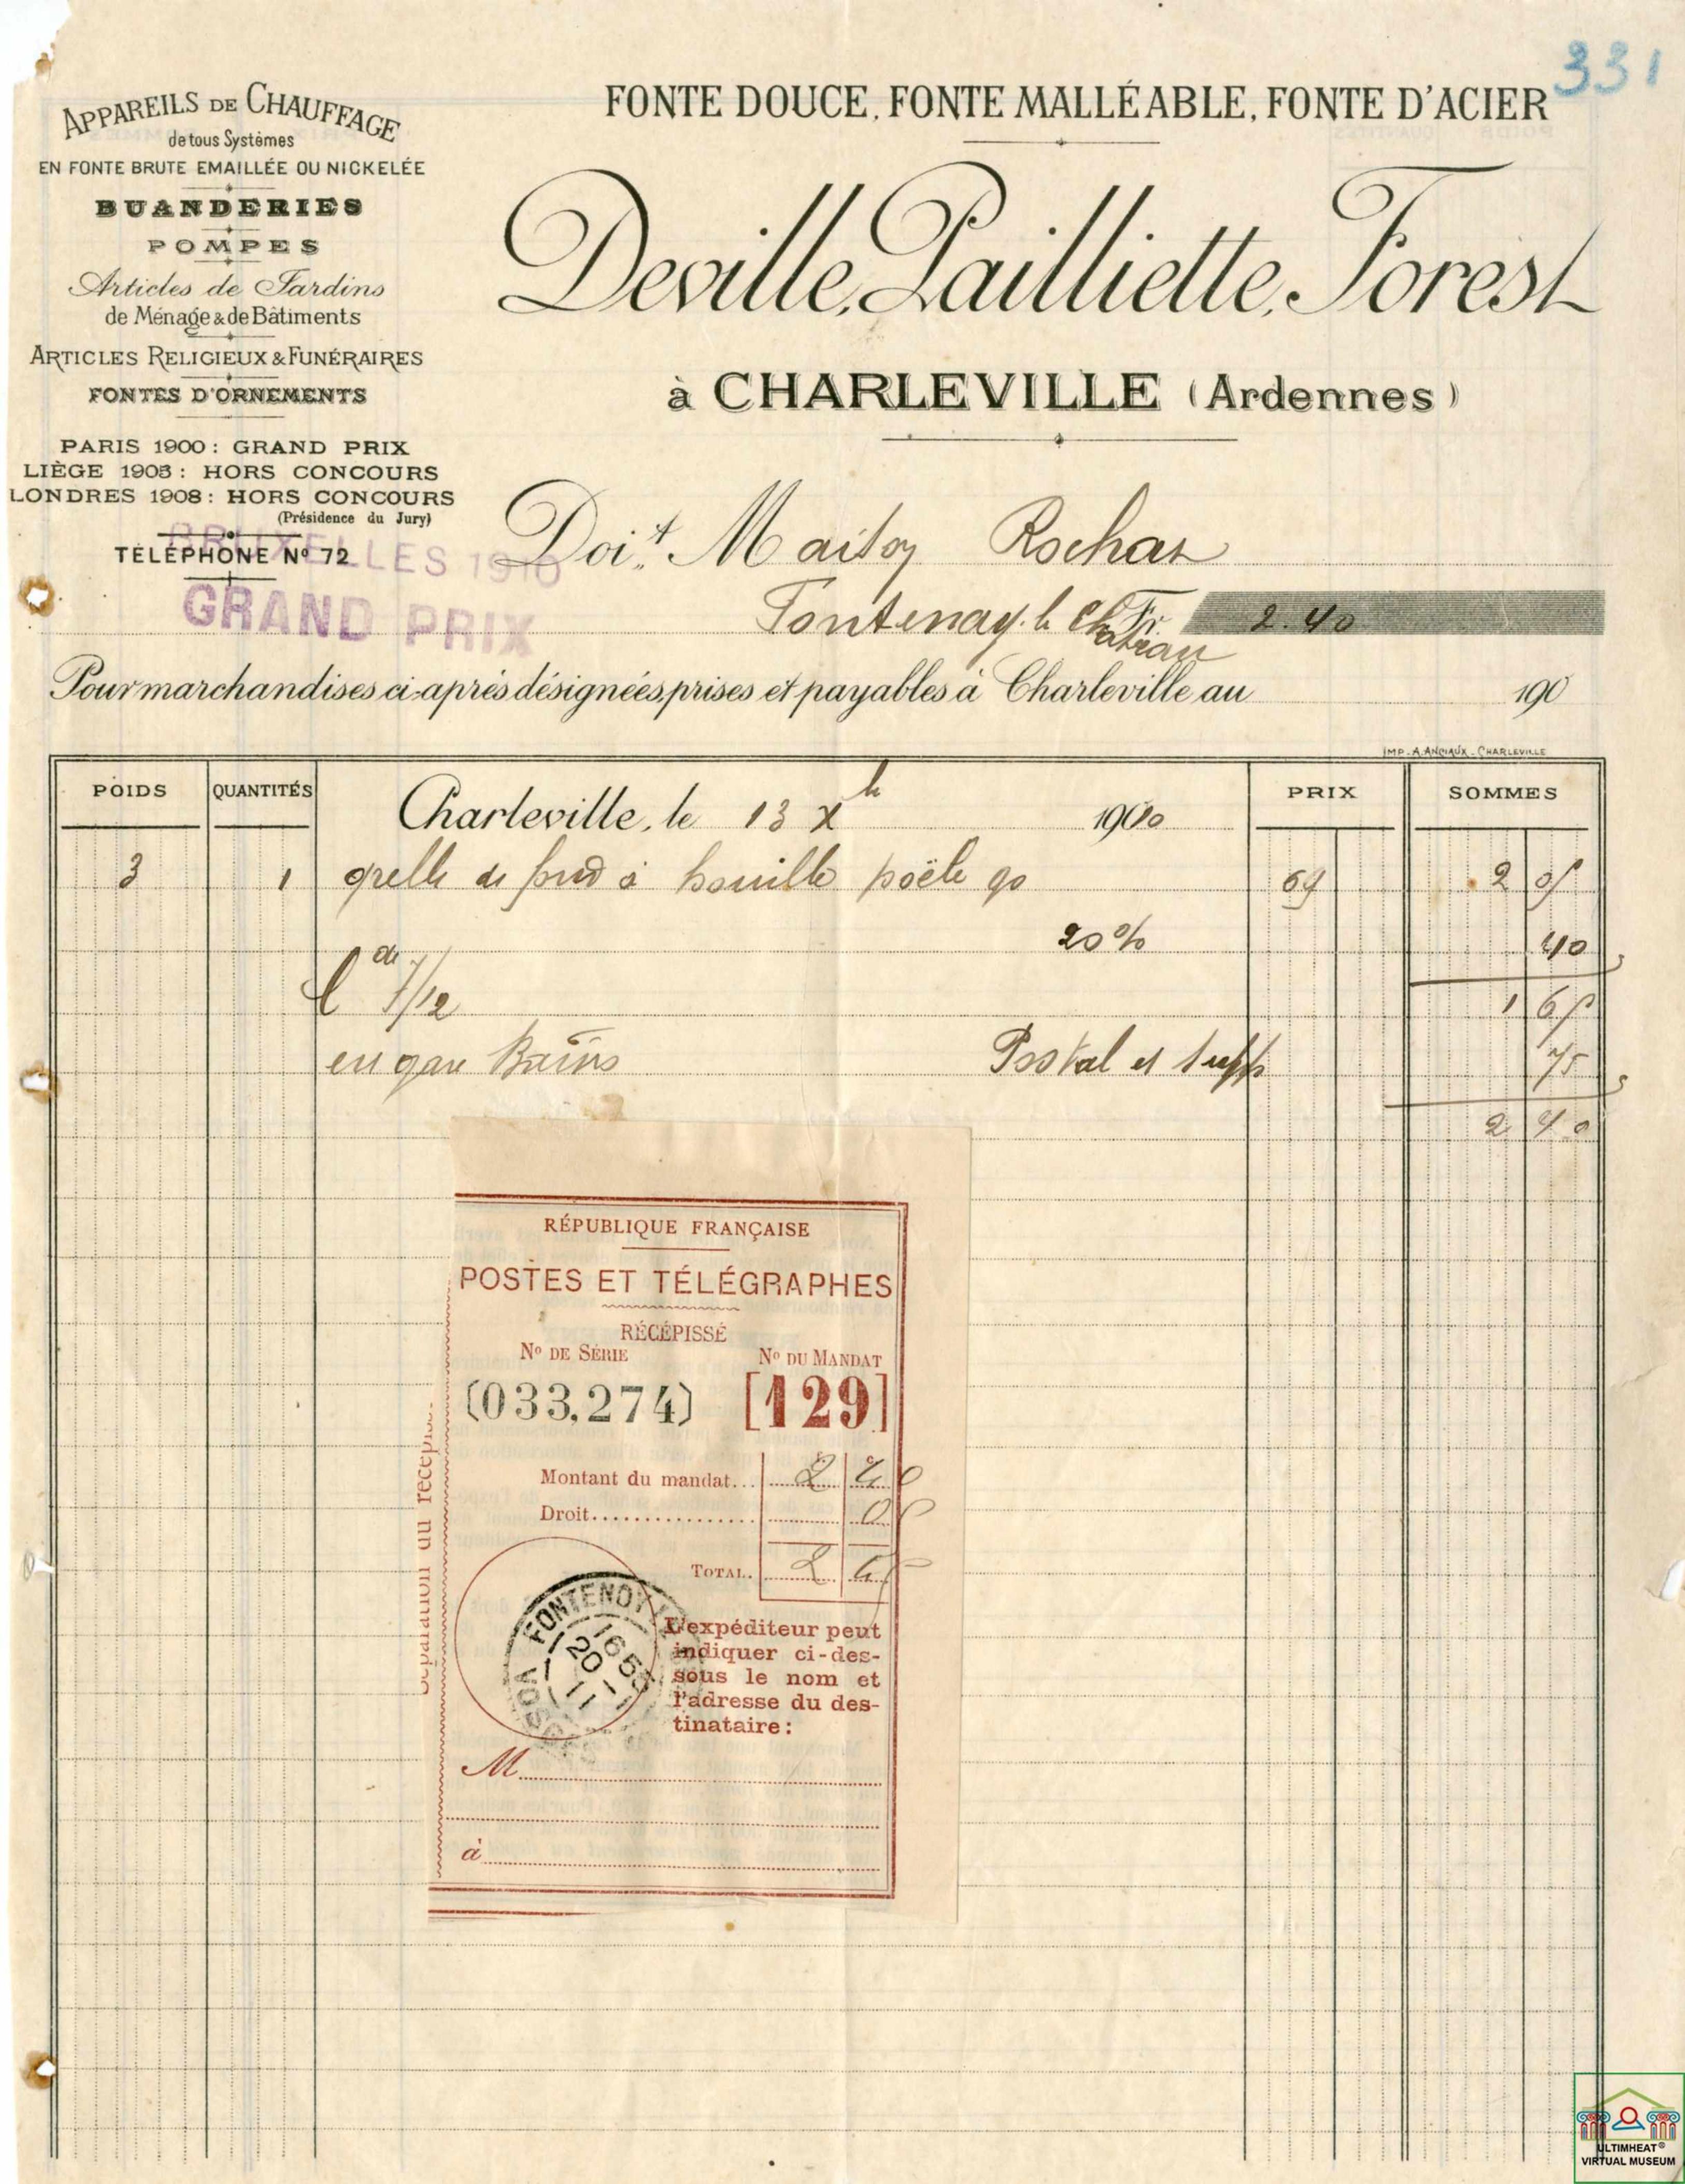 331
APPAREILS DE CHAUFFAGE
de tous Systèmes
EN FONTE BRUTE EMAILLÉE OU NICKELÉE
BUANDERIES
POMPES
Articles de Jardins
de Ménage & de Bâtiments
ARTICLES RELIGIEUX & FUNÉRAIRES
FONTES D'ORNEMENTS
PARIS 1900 : GRAND PRIX
LIÈGE 1905 : HORS CONCOURS
LONDRES 1908 : HORS CONCOURS
(Présidence du Jury)
TÉLÉPHONE Nº 72
BRUXELLES 1910
GRAND PRIX
FONTE DOUCE, FONTE MALLÉABLE, FONTE D'ACIER
Deville, Pailliette, Forest
à CHARLEVILLE (Ardennes)
Doit Maison Rochas
Fontenay le Chateau Fr. 2.40
Pour marchandises ci-après désignées, prises et payables à Charleville au 190
IMP. A. ANCIAUX - CHARLEVILLE
POIDS QUANTITÉS PRIX SOMMES
Charleville, le 13 Xbre 1910
3 1 grille de fond à houille poële 90 69 2 05
20% 40
de 7/12 1 65
en gare Bains Postal et 75
2 40
RÉPUBLIQUE FRANÇAISE
POSTES ET TÉLÉGRAPHES
RÉCÉPISSÉ
Nº DE SÉRIE Nº DU MANDAT
(033,274) [129]
Montant du mandat... 2 40
Droit 05
TOTAL. 2 45
FONTENOY
VOSGES
16 55
20 - 1
11
L'expéditeur peut
indiquer ci-des-
sous le nom et
l'adresse du des-
tinataire :
M
à
Séparation du récépissé
ULTIMHEAT®
VIRTUAL MUSEUM